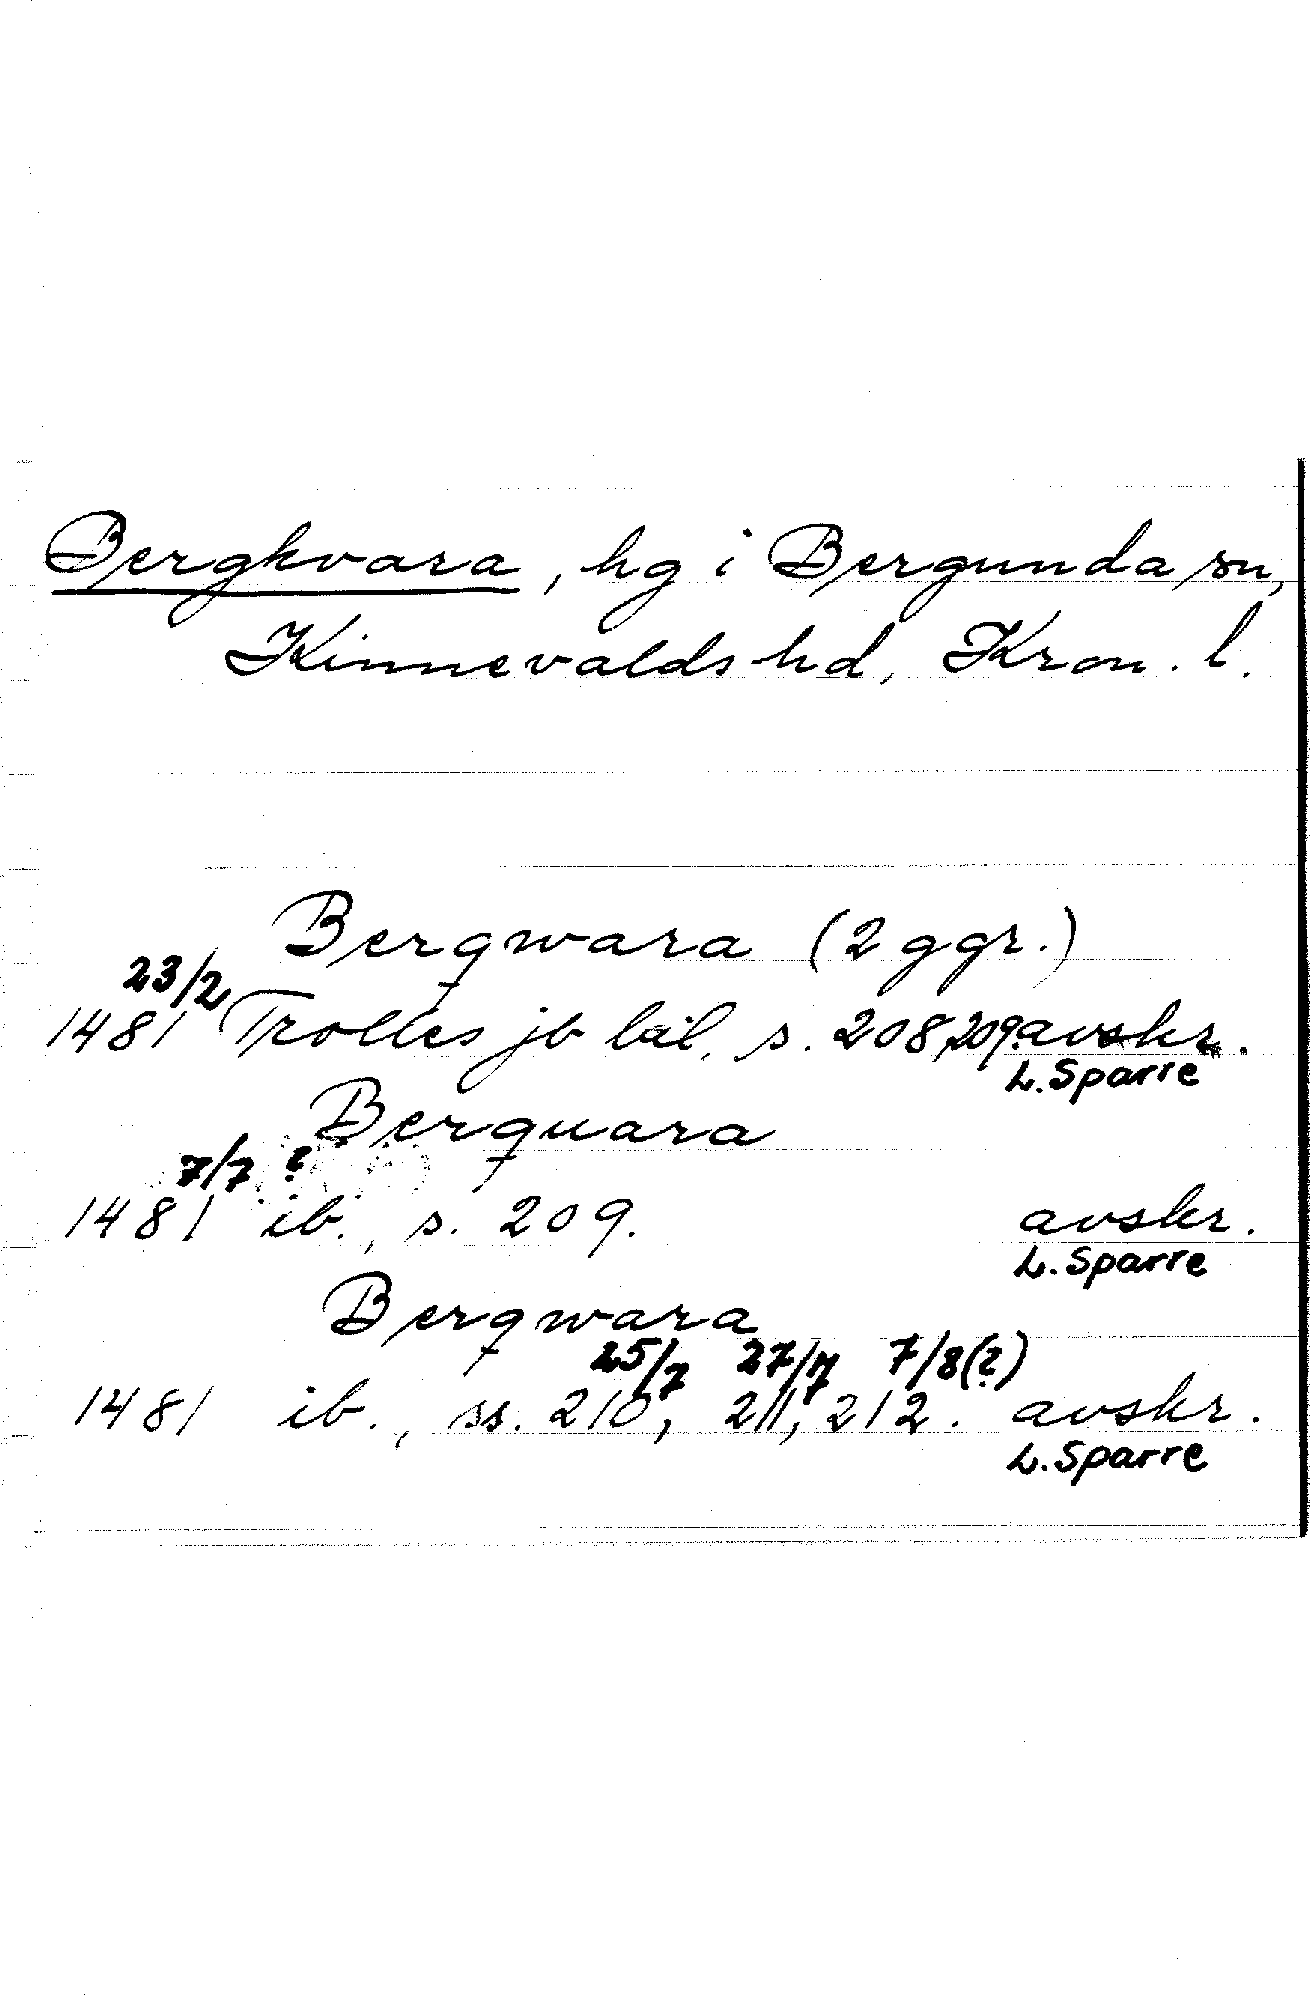 Bergkvara, hg i Bergunda sn,
Kinnevalds hd, Kron. l.
Bergwara (2 ggr.)
23/2
1481 Trolles jb bil. s. 208, 209. avskr.
L. Sparre
Berquara
7/7 ?
1481 ib., s. 209. avskr.
L. Sparre
Berqwara
25/7 27/7 7/8(?)
1481 ib., ss. 210, 211, 212. avskr.
L. Sparre